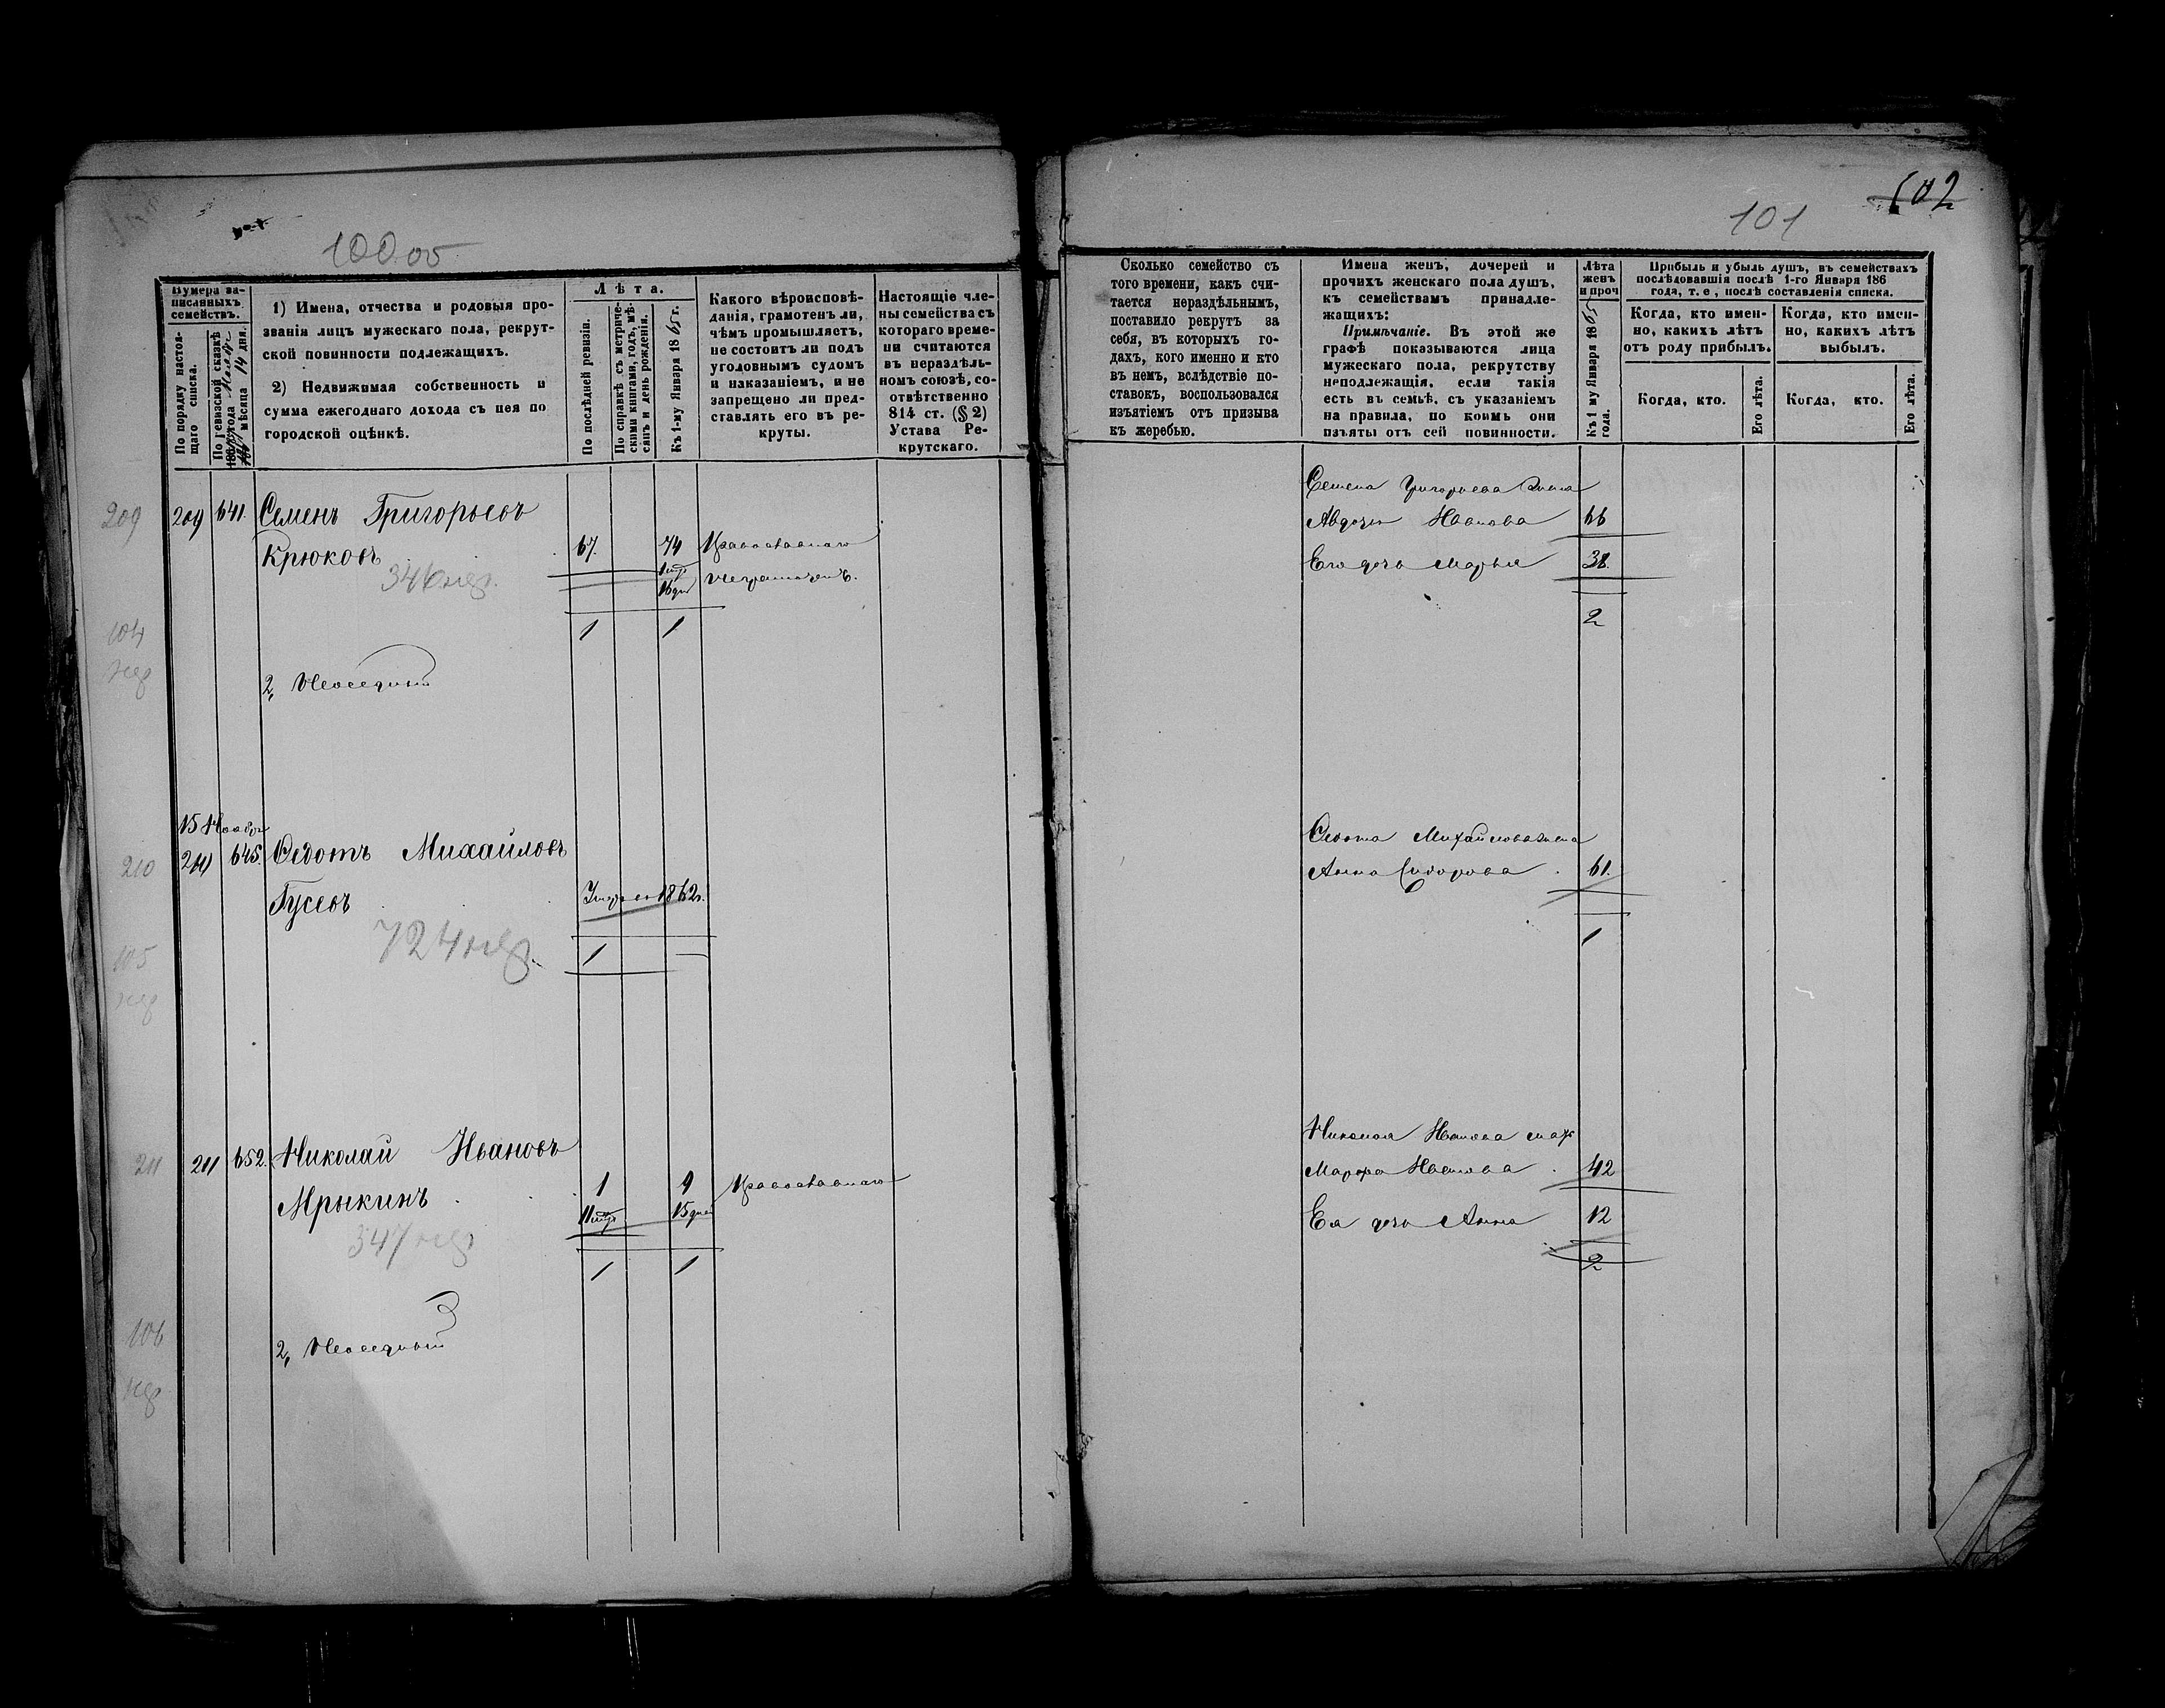 100 об
Нумера записанныхъ семействъ.
По порядку настоящаго списка.
По ревизской сказкѣ
года
мѣсяца 14 дня.
1) Имена, отчества и родовыя про-
званія лицъ мужескаго пола, рекрут-
ской повинности подлежащихъ.
2) Недвижимая собственность и
сумма ежегоднаго дохода съ нея по
городской оцѣнкѣ.
Лѣта.
По послѣдней ревизіи.
По справкѣ съ метриче-
скими книгами, годъ, мѣ-
сяцъ и день рожденія.
Къ 1-му Января 1865 г.
Какого вѣроисповѣ-
данія, грамотенъ ли,
чѣмъ промышляетъ,
не состоитъ ли подъ
уголовнымъ судомъ
и наказаніемъ, и не
запрещено ли пред-
ставлять его въ ре-
круты.
Настоящіе чле-
ны семейства съ
котораго време-
ни считаются
въ нераздѣль-
номъ союзѣ, со-
отвѣтственно
814 ст. (§ 2)
Устава Ре-
крутскаго.
209 209 641. Семенъ Григорьевъ
Крюковъ 67. 74 Православнаго
346 нед. 16 дней неграмотенъ.
1 1
104
нед
2, Неоседлый
15 Ноября
210 210 645. Федотъ Михайловъ
Гусевъ Умеръ въ 1862 г.
724 нед.
1 —
105
нед
211 211 652. Николай Ивановъ
Мрыкинъ 1 9 Православнаго
11 мѣс. 15 дней
347 нед
1 1
106
2, Неоседлый
нед
101
102
Сколько семейство съ
того времени, какъ счи-
тается нераздѣльнымъ,
поставило рекрутъ за
себя, въ которыхъ го-
дахъ, кого именно и кто
въ немъ, вслѣдствіе по-
ставокъ, воспользовался
изъятіемъ отъ призыва
къ жеребью.
Имена женъ, дочерей и
прочихъ женскаго пола душъ,
къ семействамъ принадле-
жащихъ:
Примѣчаніе. Въ этой же
графѣ показываются лица
мужескаго пола, рекрутству
неподлежащія, если такія
есть въ семьѣ, съ указаніемъ
на правила, по коимъ они
изъяты отъ сей повинности.
Лѣта
женъ
и проч
Къ 1 му Января 1865
года.
Прибыль и убыль душъ, въ семействахъ
послѣдовавшія послѣ 1-го Января 186
года, т. е, послѣ составленія списка.
Когда, кто имен-
но, какихъ лѣтъ
отъ роду прибылъ.
Когда, кто имен-
но, какихъ лѣтъ
выбылъ.
Когда, кто.
Его лѣта.
Когда, кто.
Его лѣта.
Семена Григорьева жена
Авдотья Иванова 66
Его дочь Марья 38.
2
Федота Михайлова жена
Анна Сидорова 61.
1
Николая Иванова мать
Марфа Иванова 42
Ея дочь Анна 12
2